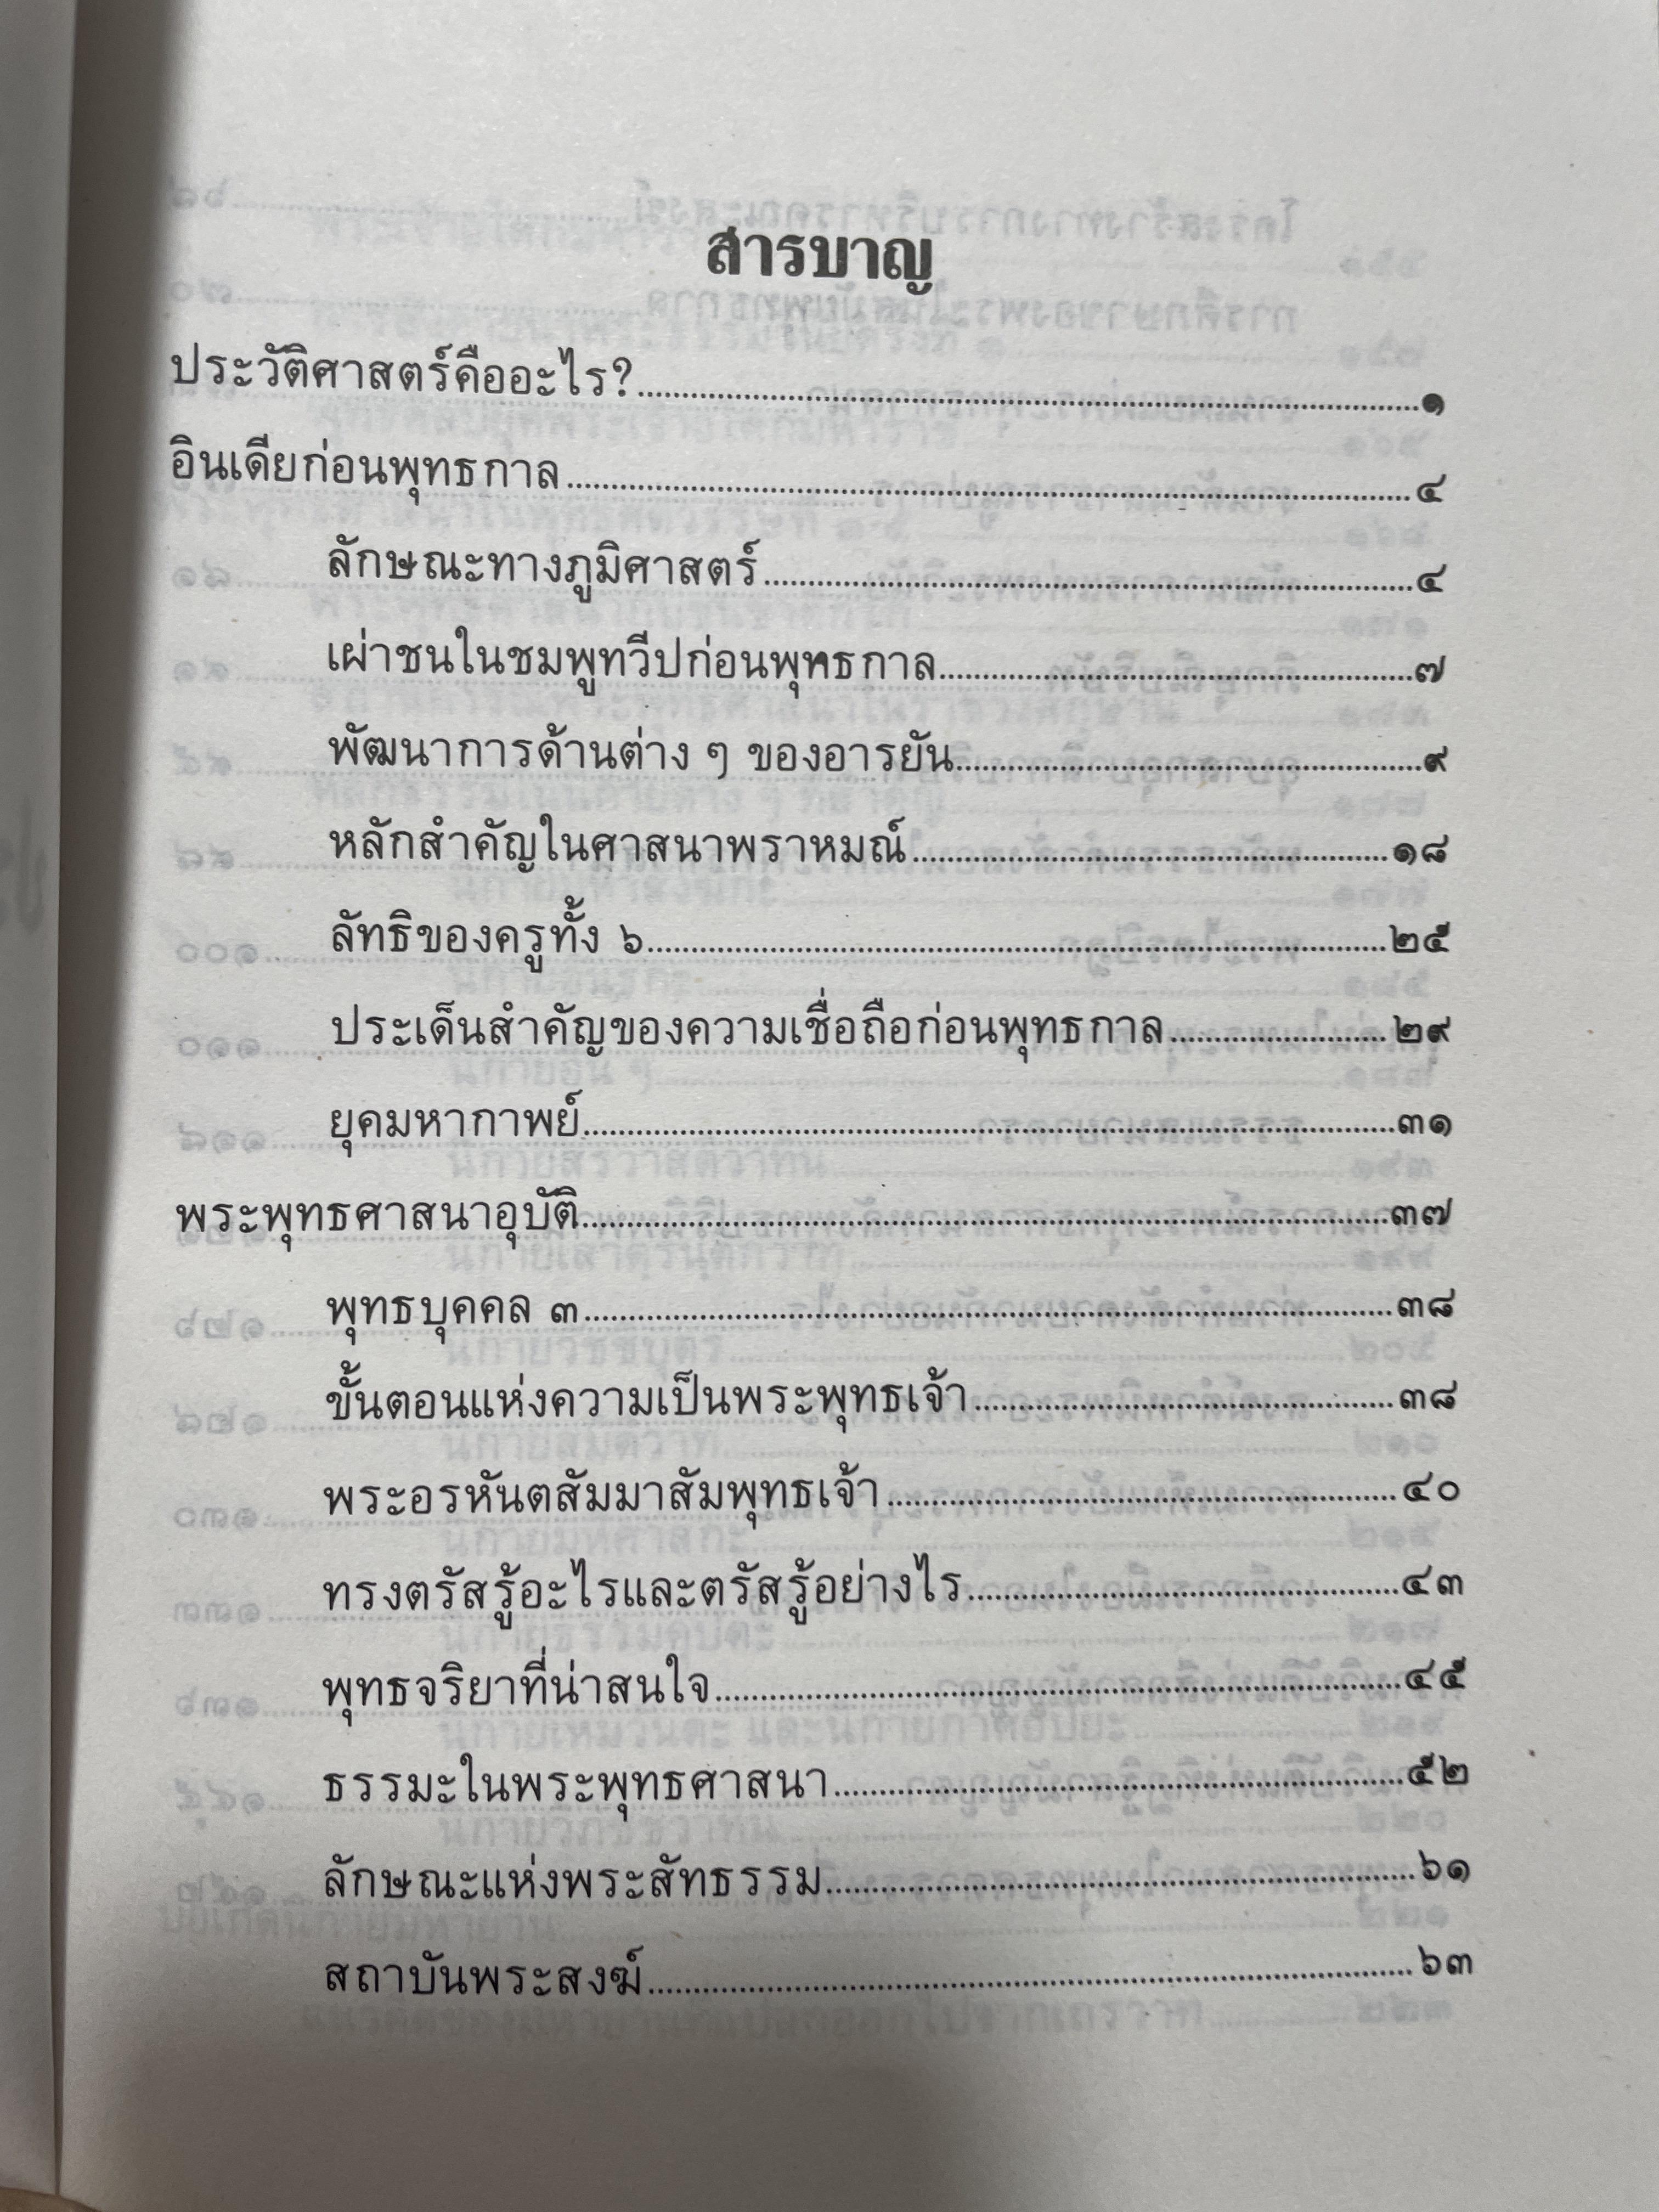 สารบาญ
ประวัติศาสตร์คืออะไร?....................๑
อินเดียก่อนพุทธกาล....................๔
ลักษณะทางภูมิศาสตร์....................๔
เผ่าชนในชมพูทวีปก่อนพุทธกาล....................๗
พัฒนาการด้านต่าง ๆ ของอารยัน....................๙
หลักสำคัญในศาสนาพราหมณ์....................๑๘
ลัทธิของครูทั้ง ๖....................๒๕
ประเด็นสำคัญของความเชื่อถือก่อนพุทธกาล....................๒๙
ยุคมหากาพย์....................๓๑
พระพุทธศาสนาอุบัติ....................๓๗
พุทธบุคคล ๓....................๓๘
ขั้นตอนแห่งความเป็นพระพุทธเจ้า....................๓๘
พระอรหันตสัมมาสัมพุทธเจ้า....................๔๐
ทรงตรัสรู้อะไรและตรัสรู้อย่างไร....................๔๓
พุทธจริยาที่น่าสนใจ....................๔๕
ธรรมะในพระพุทธศาสนา....................๕๒
ลักษณะแห่งพระสัทธรรม....................๖๑
สถาบันพระสงฆ์....................๖๓